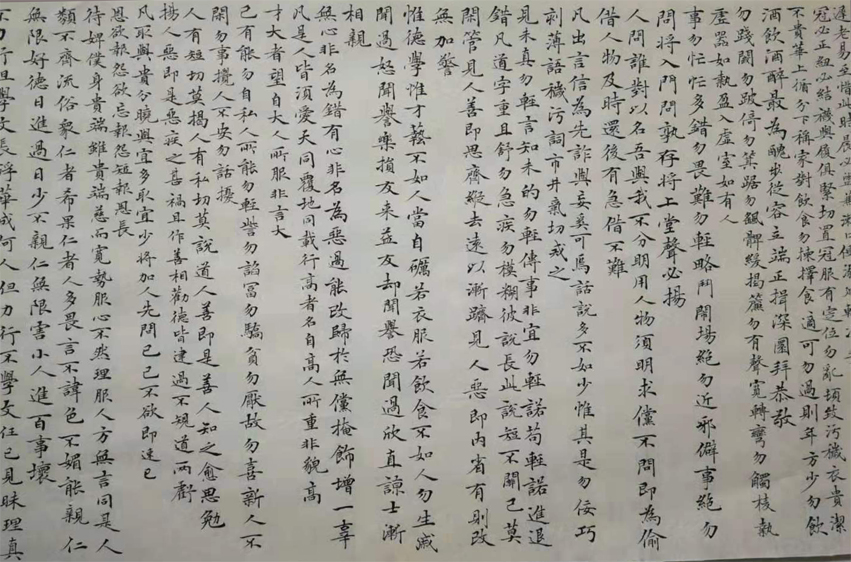 遲老易至惜此時晨必盥兼漱口便溺回輒
冠必正紐必結襪與履俱緊切置冠服有定位勿亂頓致污穢衣貴潔
不貴華上循分下稱家對飲食勿揀擇食適可勿過則年方少勿飲
酒飲酒醉最為醜步從容立端正揖深圓拜恭敬
勿踐閾勿跛倚勿箕踞勿搖髀緩揭簾勿有聲寬轉彎勿觸棱執
虛器如執盈入虛室如有人
事勿忙忙多錯勿畏難勿輕略鬥鬧場絕勿近邪僻事絕勿
問將入門問孰存將上堂聲必揚
人問誰對以名吾與我不分明用人物須明求儻不問即為偷
借人物及時還後有急借不難
凡出言信為先詐與妄奚可焉話說多不如少惟其是勿佞巧
刻薄語穢污詞市井氣切戒之
見未真勿輕言知未的勿輕傳事非宜勿輕諾苟輕諾進退
錯凡道字重且舒勿急疾勿模糊彼說長此說短不關己莫
閑管見人善即思齊縱去遠以漸躋見人惡即內省有則改
無加警
惟德學惟才藝不如人當自礪若衣服若飲食不如人勿生慼
聞過怒聞譽樂損友來益友却聞譽恐聞過欣直諒士漸
相親
無心非名為錯有心非名為惡過能改歸於無儻掩飾增一辜
凡是人皆須愛天同覆地同載行高者名自高人所重非貌高
才大者望自大人所服非言大
己有能勿自私人所能勿輕訾勿諂富勿驕貧勿厭故勿喜新人不
閑勿事攪人不安勿話擾
人有短切莫揭人有私切莫說道人善即是善人知之愈思勉
揚人惡即是惡疾之甚禍且作善相勸德皆建過不規道兩虧
凡取與貴分曉與宜多取宜少將加人先問己己不欲即速已
恩欲報怨欲忘報怨短報恩長
待婢僕身貴端雖貴端慈而寬勢服心不然理服人方無言同是人
類不齊流俗眾仁者希果仁者人多畏言不諱色不媚能親仁
無限好德日進過日少不親仁無限害小人進百事壞
不力行但學文長浮華成何人但力行不學文任己見昧理真